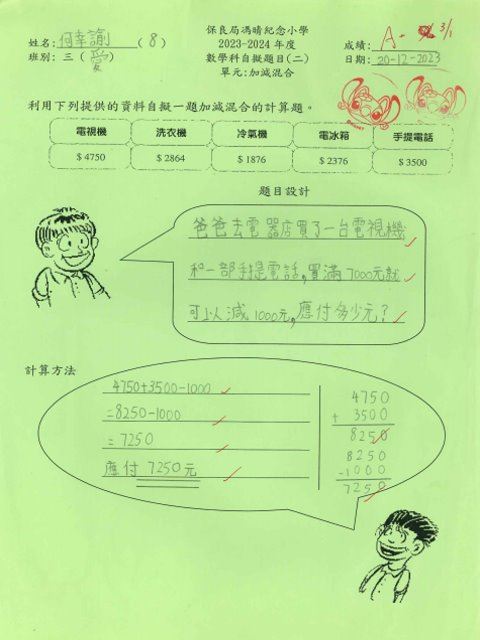 保良局馮晴紀念小學
2023-2024 年度
數學科自擬題目(二)
單元:加減混合
姓名: 何幸諭 (8)
班別: 三 (愛)
成績: A- 3/1
日期: 20-12-2023
利用下列提供的資料自擬一題加減混合的計算題。
電視機 洗衣機 冷氣機 電冰箱 手提電話
$ 4750 $ 2864 $ 1876 $ 2376 $ 3500
題目設計
爸爸去電器店買了一台電視機
和一部手提電話,買滿7000元就
可以減1000元,應付多少元?
計算方法
4750+3500-1000
=8250-1000
=7250
應付 7250元
4750
+ 3500
8250
8250
-1000
7250